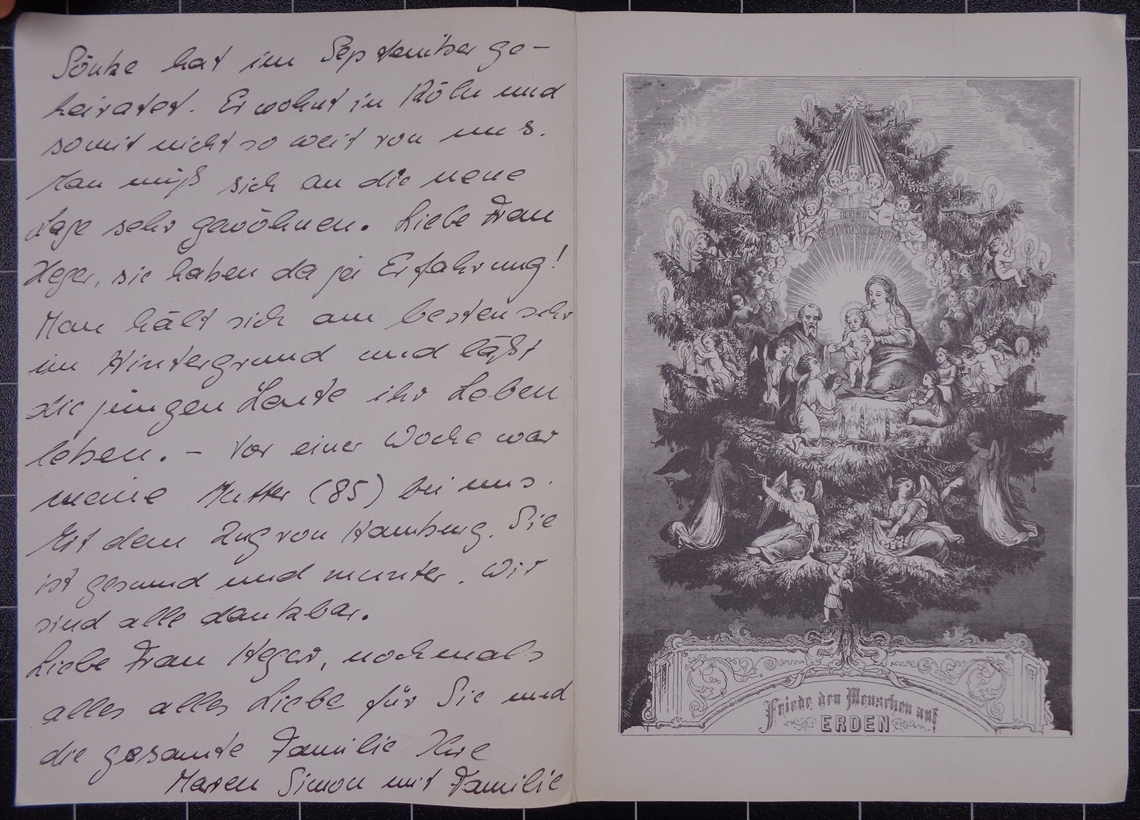 Sönke hat im September ge-
heiratet. Er wohnt in Köln und
somit nicht so weit von uns.
Man muß sich an die neue
Lage sehr gewöhnen. Liebe Frau
Heger, sie haben da ja Erfahrung!
Man hält sich am besten sehr
im Hintergrund und läßt
die jungen Leute ihr Leben
leben. – Vor einer Woche war
meine Mutter (85) bei uns.
Mit dem Zug von Hamburg. Sie
ist gesund und munter. Wir
sind alle dankbar.
Liebe Frau Heger, nochmals
alles alles Liebe für Sie und
die gesamte Familie Ihre
Maren Simon mit Familie
Friede den Menschen auf
ERDEN